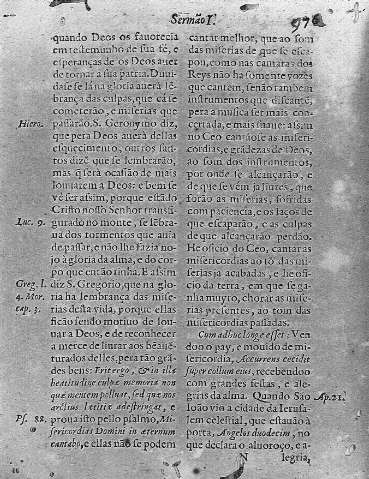 Sermão I.
976
quando Deos os fauorecia
em testemunho de sua fé, e
esperanças de os Deos auer
de tornar a sua patria. Duui-
da se se lá na gloria auerá lē-
brança das culpas, que cá se
cometerão, e miserias que
Hiero.
passarão. S. Geronymo diz,
que pera Deos auerá dellas
esquecimento, outros san-
tos dizē que se lembrarão,
mas q̃ será ocasião de mais
louuarem a Deos: e bem se
vè ser assim, porque estãdo
Cristo nosso Senhor transfi-
Luc. 9.
gurado no monte, se lēbra-
ua dos tormentos que auia
de passar, e não lhe fazia no-
jo à gloria da alma, e do cor-
po que então tinha. E assim
Greg. l.
4. Mor.
cap. 3.
diz S. Gregorio, que na glo-
ria ha lembrança das mise-
rias desta vida, porque ellas
ficão sendo motiuo de lou-
uar a Deos, e de reconhecer
a merce de liurar aos beauē-
turados dellas, pera tão grã-
des bens: Fit ergo, & in illa
beatitudine culpæ memoria non
que mentem polluat, sed que nos
arctius lætitiæ adestringat, e
Ps. 88.
proua isto pello psalmo, Mi-
sericordias Domini in æternum
cantabo, e ellas não se podem
cantar melhor, que ao som
das miserias de que se esca-
pou, como nas cantaras dos
Reys não ha somente vozes
que cantem, senão tambem
instrumentos que discantē,
pera a musica ser mais con-
certada, e mais suaue: assim
no Ceo cantãose as miseri-
cordias, e grãdezas de Deos,
ao som dos instrumentos,
por onde se alcançarão, e
de que se vem já liures, que
forão as miserias, sofridas
com paciencia, e os laços de
que escaparão, e as culpas
de que alcançarão perdão.
He oficio do Ceo, cantar as
misericordias ao tõ das mi-
serias ja acabadas, e he ofi-
cio da terra, em que se ga-
nha muyto, chorar as mise-
rias presentes, ao tom das
misericordias passadas.
Cum adhuc longe esset: Ven
do o pay, e mouido de mi-
sericordia, Accurrens cecidit
super collum eius, recebendoo
com grandes festas, e ale-
Ap. 21.
grias da alma. Quando São
Ioão vio a cidade da Ierusa-
lem celestial, que estauão à
porta, Angelos duodecim, no
que declara o aluoroço, e a-
N
legria,